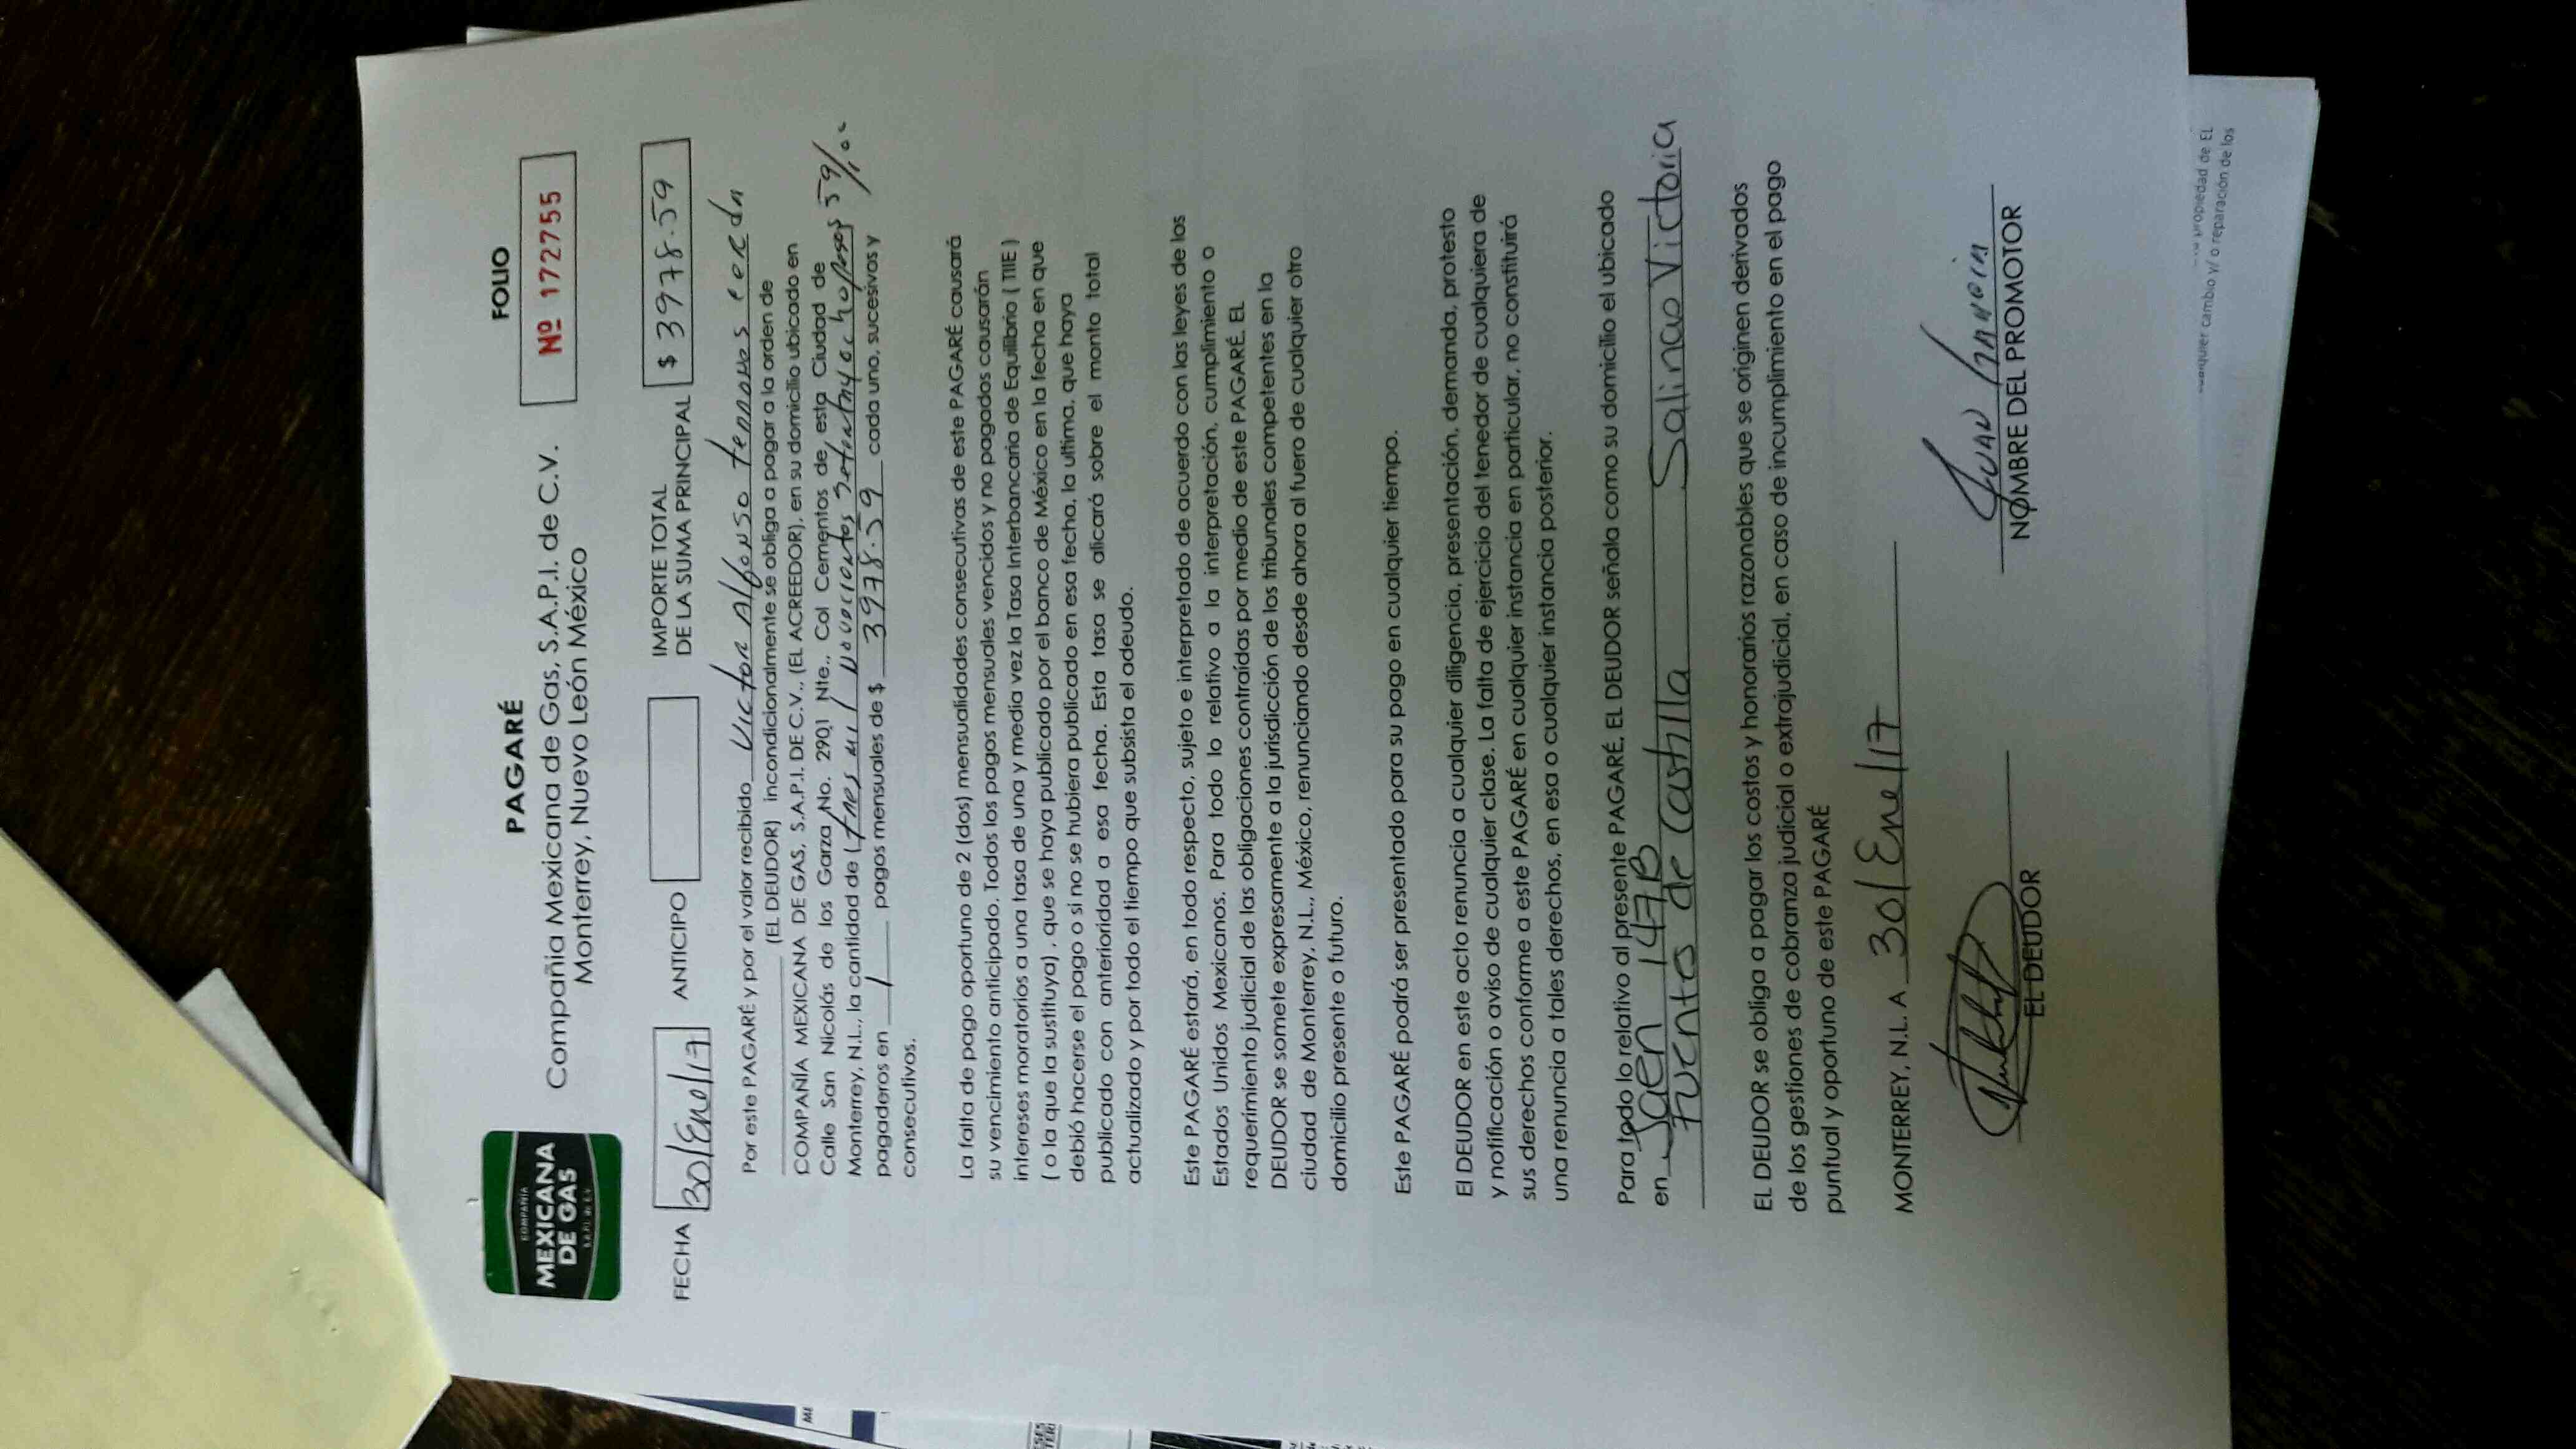 COMPAÑIA
MEXICANA
DE GAS
S.A.P.I. de C.V.
PAGARÉ
Compañia Mexicana de Gas, S.A.P.I. de C.V.
Monterrey, Nuevo León México
FOLIO
Nº 172755
FECHA 30/Ene/17 ANTICIPO IMPORTE TOTAL
DE LA SUMA PRINCIPAL $ 3978.59
Por este PAGARÉ y por el valor recibido Victor Alfonso
(EL DEUDOR) incondicionalmente se obliga a pagar a la orden de
COMPAÑÍA MEXICANA DE GAS, S.A.P.I. DE C.V., (EL ACREEDOR), en su domicilio ubicado en
Calle San Nicolás de los Garza No. 2901 Nte., Col Cementos de, esta Ciudad de
Monterrey, N.L., la cantidad de (tres mil novecientos setenta y ocho pesos 59/100
pagaderos en 1 pagos mensuales de $ 3978.59 cada uno, sucesivos y
consecutivos.
La falta de pago oportuno de 2 (dos) mensualidades consecutivas de este PAGARÉ causará
su vencimiento anticipado. Todos los pagos mensuales vencidos y no pagados causarán
intereses moratorios a una tasa de una y media vez la Tasa Interbancaria de Equilibrio ( TIIE )
( o la que la sustituya) , que se haya publicado por el banco de México en la fecha en que
debió hacerse el pago o si no se hubiera publicado en esa fecha, la ultima, que haya
publicado con anterioridad a esa fecha. Esta tasa se alicará sobre el monto total
actualizado y por todo el tiempo que subsista el adeudo.
Este PAGARÉ estará, en todo respecto, sujeto e interpretado de acuerdo con las leyes de los
Estados Unidos Mexicanos. Para todo lo relativo a la interpretación, cumplimiento o
requerimiento judicial de las obligaciones contraídas por medio de este PAGARÉ, EL
DEUDOR se somete expresamente a la jurisdicción de los tribunales competentes en la
ciudad de Monterrey, N.L., México, renunciando desde ahora al fuero de cualquier otro
domicilio presente o futuro.
Este PAGARÉ podrá ser presentado para su pago en cualquier tiempo.
El DEUDOR en este acto renuncia a cualquier diligencia, presentación, demanda, protesto
y notificación o aviso de cualquier clase. La falta de ejercicio del tenedor de cualquiera de
sus derechos conforme a este PAGARÉ en cualquier instancia en particular, no constituirá
una renuncia a tales derechos, en esa o cualquier instancia posterior.
Para todo lo relativo al presente PAGARÉ, EL DEUDOR señala como su domicilio el ubicado
en Jaen 147B
Fuentes de Castilla Salinas Victoria
EL DEUDOR se obliga a pagar los costos y honorarios razonables que se originen derivados
de los gestiones de cobranza judicial o extrajudicial, en caso de incumplimiento en el pago
puntual y oportuno de este PAGARÉ
MONTERREY, N.L. A 30/Ene/17
Juan
EL DEUDOR
NOMBRE DEL PROMOTOR
propiedad de EL
cualquier cambio y/ o reparación de los